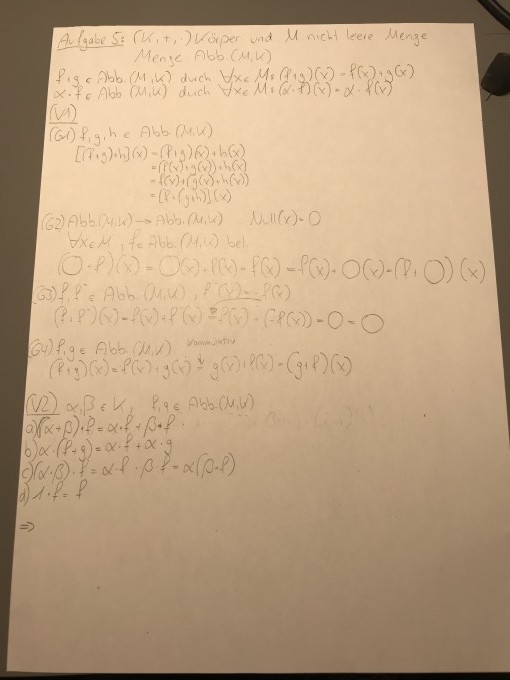 Aufgabe 5: (K,+,·) Körper und M nicht leere Menge
Menge Abb.(M,K)
f+g ∈ Abb.(M,K) durch ∀x∈M: (f+g)(x) = f(x)+g(x)
α·f ∈ Abb.(M,K) durch ∀x∈M: (α·f)(x) = α·f(x)
(V1)
(G1) f,g,h ∈ Abb.(M,K)
[(f+g)+h](x) = (f+g)(x)+h(x)
= (f(x)+g(x))+h(x)
= f(x)+(g(x)+h(x))
= [f+(g+h)](x)
(G2) Abb.(M,K) → Abb.(M,K) Null(x)=0
∀x∈M, f∈Abb.(M,K) bel.
(O+f)(x) = O(x)+f(x) = f(x) = f(x)+O(x) = (f+O)(x)
(G3) f, f⁻ ∈ Abb.(M,K), f⁻(x) = -f(x)
(f+f⁻)(x) = f(x)+f⁻(x) = f(x)+(-f(x)) = 0 = O
(G4) f,g ∈ Abb.(M,K) Kommutativ
(f+g)(x) = f(x)+g(x) = g(x)+f(x) = (g+f)(x)
(V2) α,β ∈ K, f,g ∈ Abb.(M,K)
a) (α+β)·f = α·f+β·f
b) α·(f+g) = α·f+α·g
c) (α·β)·f = α·f·β·f = α(β·f)
d) 1·f = f
⇒